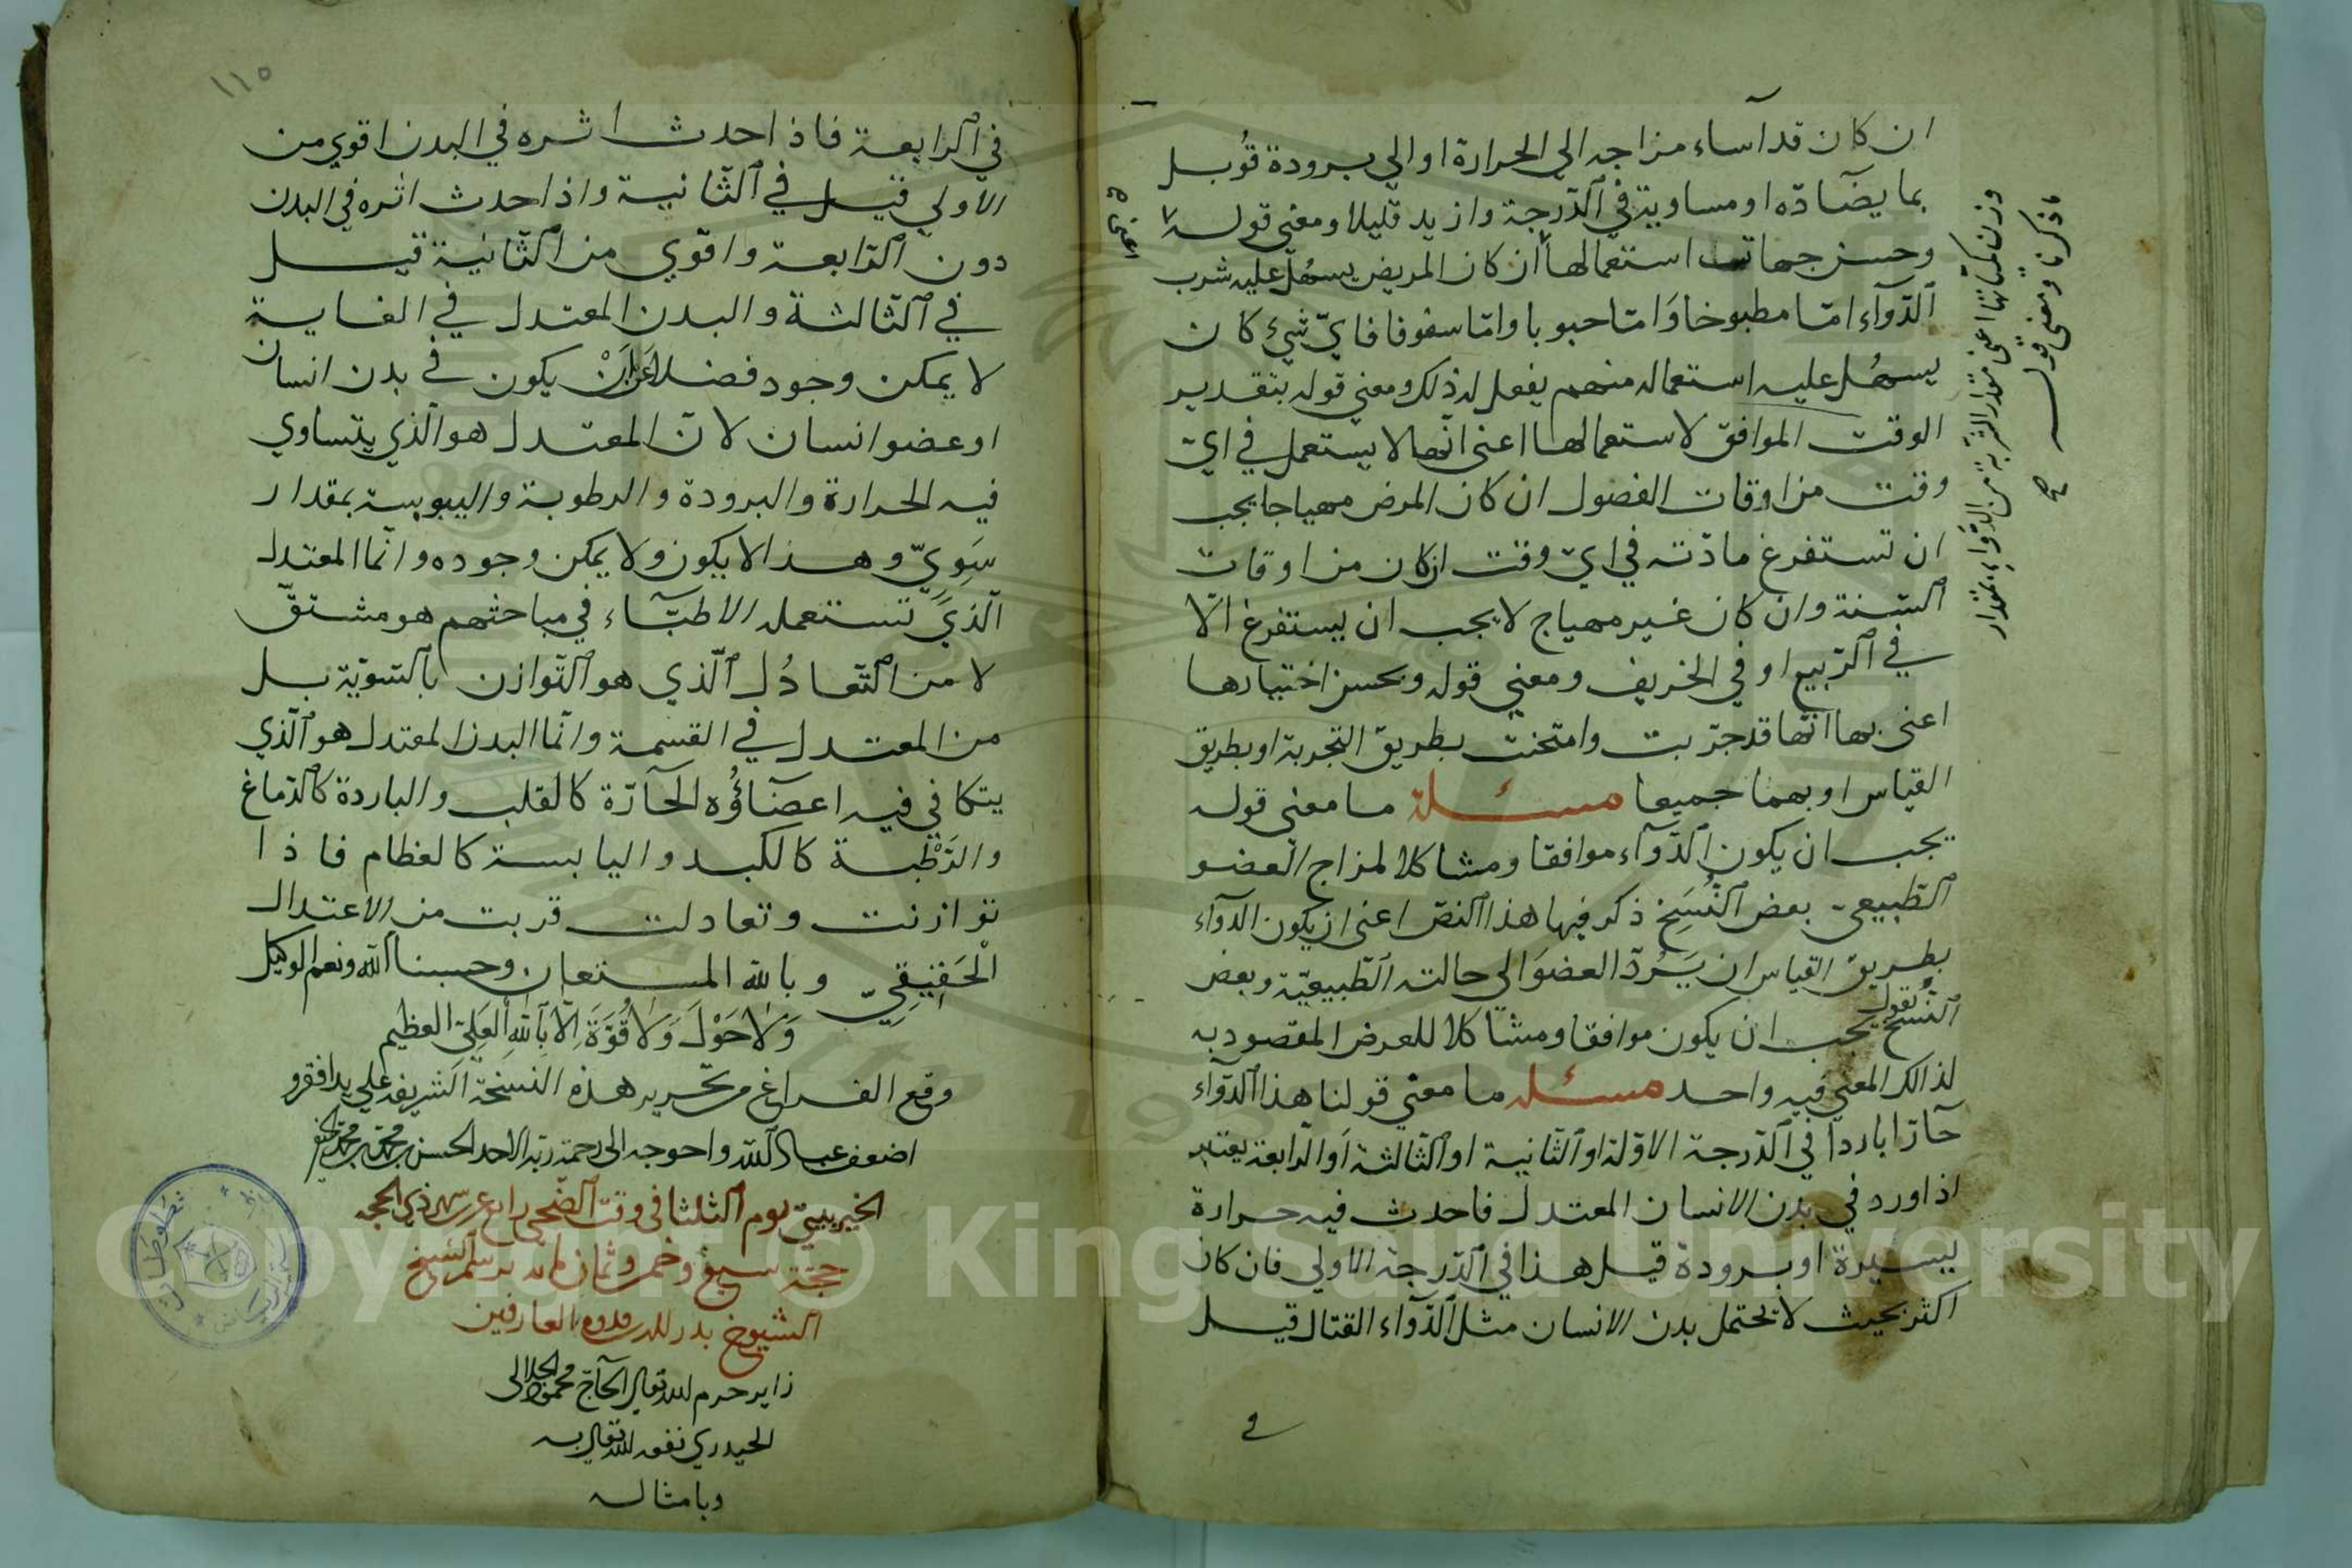 ان كان قد آساء مزاجه الي الحرارة او الي برودة قوُبل
بما يضآدّه او مساوية في ٱلدّرجة وازيد قليلا ومعني قوله
وحسن جهات استعمالها ان كان المريض يسهُل عليه شرب
ٱلدّوآء امّا مطبوخا وَامّا حبوبا وامّا سفوفا فايّ شيء كان
يسهُل عليه استعماله منهم يفعل له ذلك ومعني قوله بتقدير
الوقت الموافق لاستعمالها اعني انّها لا يستعمل في ايّ
وقت من اوقات الفصول ان كان المرض مهياجا يجب
ان تستفرغ مادّته في ايّ وقت ان كان من اوقات
ٱلسّنة وان كان غير مهياج لا يجب ان يستفرغ الّا
في ٱلرّبيع او في الخريف ومعني قوله وبحسن اختيارها
اعني بها انّها قد جرّبت وامتحنت بطريق التجربة او بطريق
القياس او بهما جميعا مسئلة ما معني قوله
يجب ان يكون ٱلدّوآء موافقا ومشاكلا لمزاج العضو
ٱلطّبيعيّ بعض ٱلنُّسَخ ذكر فيها هذا ٱلنصّ اعني ان يكون الدوآء
بطريق القياس ان يَرُدّ العضوَ الي حالته ٱلطّبيعيّة وبعض
ٱلنّسخ تقول يجب ان يكون موافقا ومشاكلا للعرض المقصود به
لذالك المعني فيه واحد مسئله ما معني قولنا هذا ٱلدّوآء
حآرّا باردا في ٱلدّرجة الاوّلة او ٱلثّانية او ٱلثّالثة اَو ٱلرّابعة يعتبر
اذا ورد في بدن الانسان المعتدل فاحدث فيه حرارة
يسيرة او برودة قيل هذا في ٱلدّرجة الاولي فان كان
اكثر بحيث لا يحتمل بدن الانسان مثل ٱلدّوآء القتال قيل
في
وزن كميّاتها اعني مقدار الشربة من الدّوآء بمقدار
ما ذكرنا ومعني قوله صح
اعني
١١٥
في ٱلرابعة فاذا حدث اثره في البدن اقوي من
الاولي قيل في ٱلثّانية واذا حدث اثره في البدن
دون ٱلرّابعة واقوّي من ٱلثّانية قيل
في ٱلثّالثة والبدن المعتدل في الغاية
لا يمكن وجود فضلا عَن اَنْ يكون في بدن انسان
او عضو انسان لانّ المعتدل هو ٱلّذي يتساوي
فيه الحرارة والبرودة والرطوبة واليبوسة بمقدار
سَوِيّ وهذا لا يكون ولا يمكن وجوده وانّما المعتدل
ٱلّذي تستعمله الاطبّآء في مباحثهم هو مشتقّ
لا من ٱلتّعادُل ٱلّذي هو ٱلتّوازن بٱلتسويّة بل
من المعتدل في القسمة وانّما البدن المعتدل هو ٱلّذي
يتكافي فيه اعضآؤُه الحآرّة كالقلب والباردة كٱلدّماغ
والرَّطْبة كالكبد واليابسة كالعظام فاذا
توازنت وتعادلت قربت من الاعتدال
الْحَقِيقِيّ وبالله المستعان وحسبنا ٱلله ونعم الوكيل
وَلَا حَوْلَ وَلَا قُوَّةَ اِلَّا بِٱللهِ ٱلعَلِيّ العظيم
وقع الفراغ من تحرير هذه النسخة ٱلشريفة علي يد افقر و
اضعف عباد ٱللّه واحوجه الى رحمة ربه الاحد الحسن بن محمّد بن محمّد
يوم ٱلثلثا في وقت ٱلضّحي رابع عر شهر ذي الحجه
حجّة سبع وخمس وثمان مايه برسم ٱلشيخ
الشيوخ بدر للدين قدوة العارفين
زاير حرم الله تعالى الحآجّ محمود الجلالى
الحيدري نفعه الله تعالى به
وبامثاله
Copyright © King Saud University